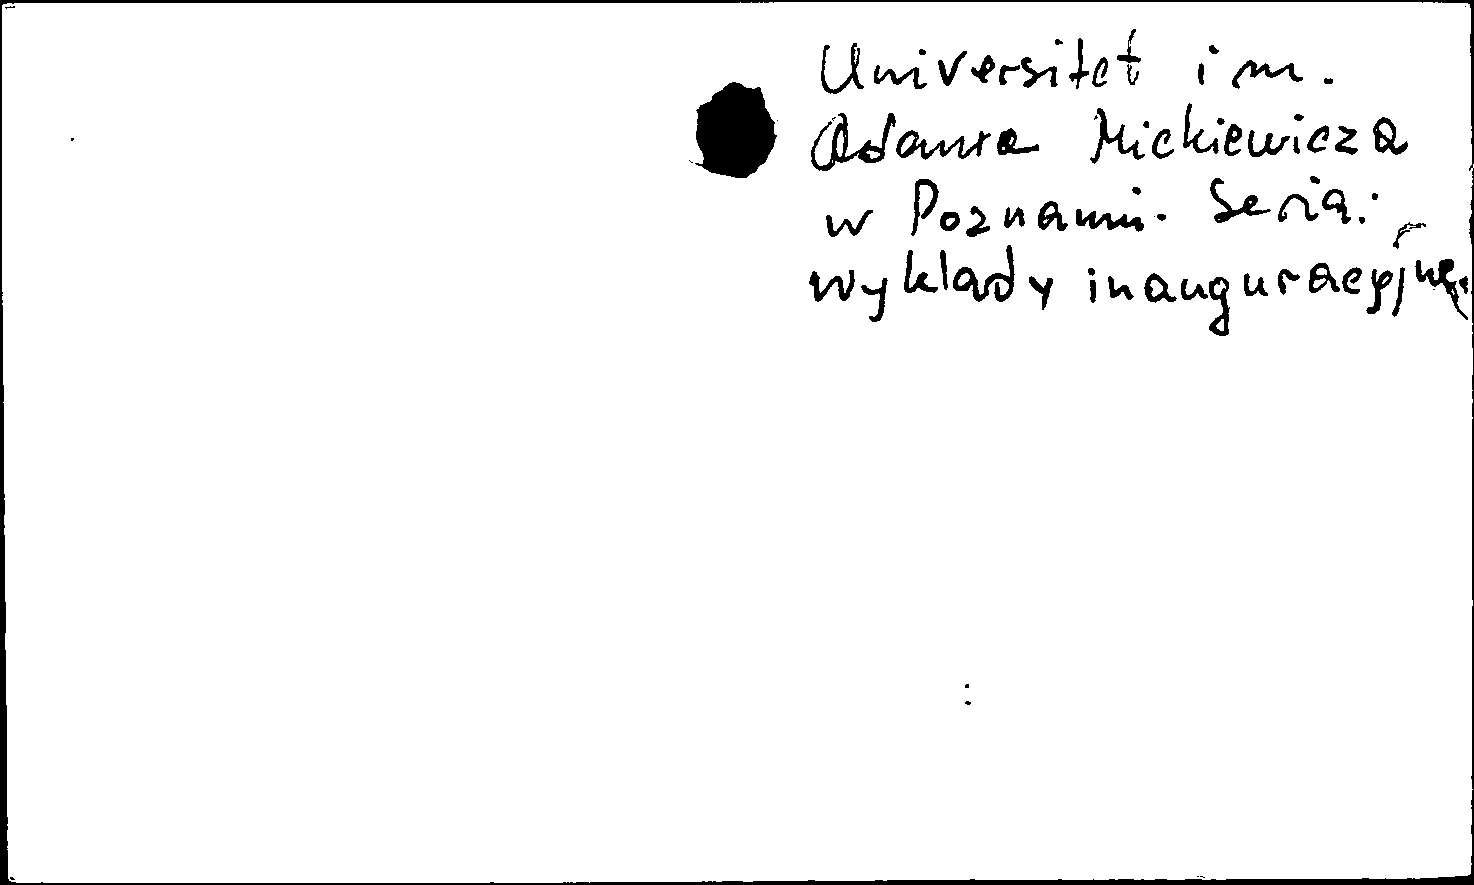 Universitet im.
Adama Mickiewicza
w Poznaniu. Seria:
wyklady inauguracyjne.